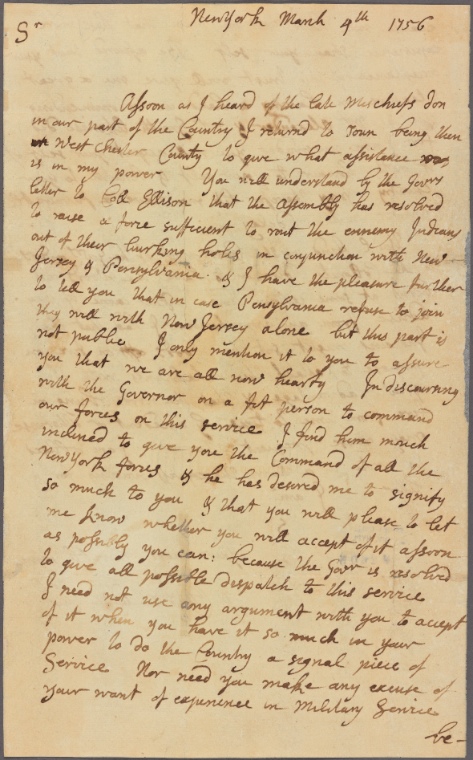 New York March 4th 1756
Sr
Assoon as I heard of the late Mischiefs don
in our part of the Country I returnd to Town being then
in West Chester County to give what assistance was
is in my power You will understand by the Govrs
letter to Coll Ellison that the Assembly has resolved
to raise a force sufficient to rout the enemy Indians
out of their lurking holes in conjunction with New
Jersey & Pensylvania. & I have the pleasure further
to tell you that in case Pensylvania refuse to join
they will with New Jersey alone but this part is
not public I only mention it to you to assure
you that we are all now hearty In discoursing
with the Governor on a fit person to command
our forces on this service I find him much
inclined to give you the Command of all the
New York forces & he has desired me to signify
so much to you & that you will please to let
me know whether you will accept of it assoon
as possibly you can: because the Govr is resolved
to give all possible dispatch to this service
I need not use any argument with you to accept
of it when you have it so much in your
power to do the Country a signal piece of
Service Nor need you make any excuse of
your want of experience in Military Service
be-